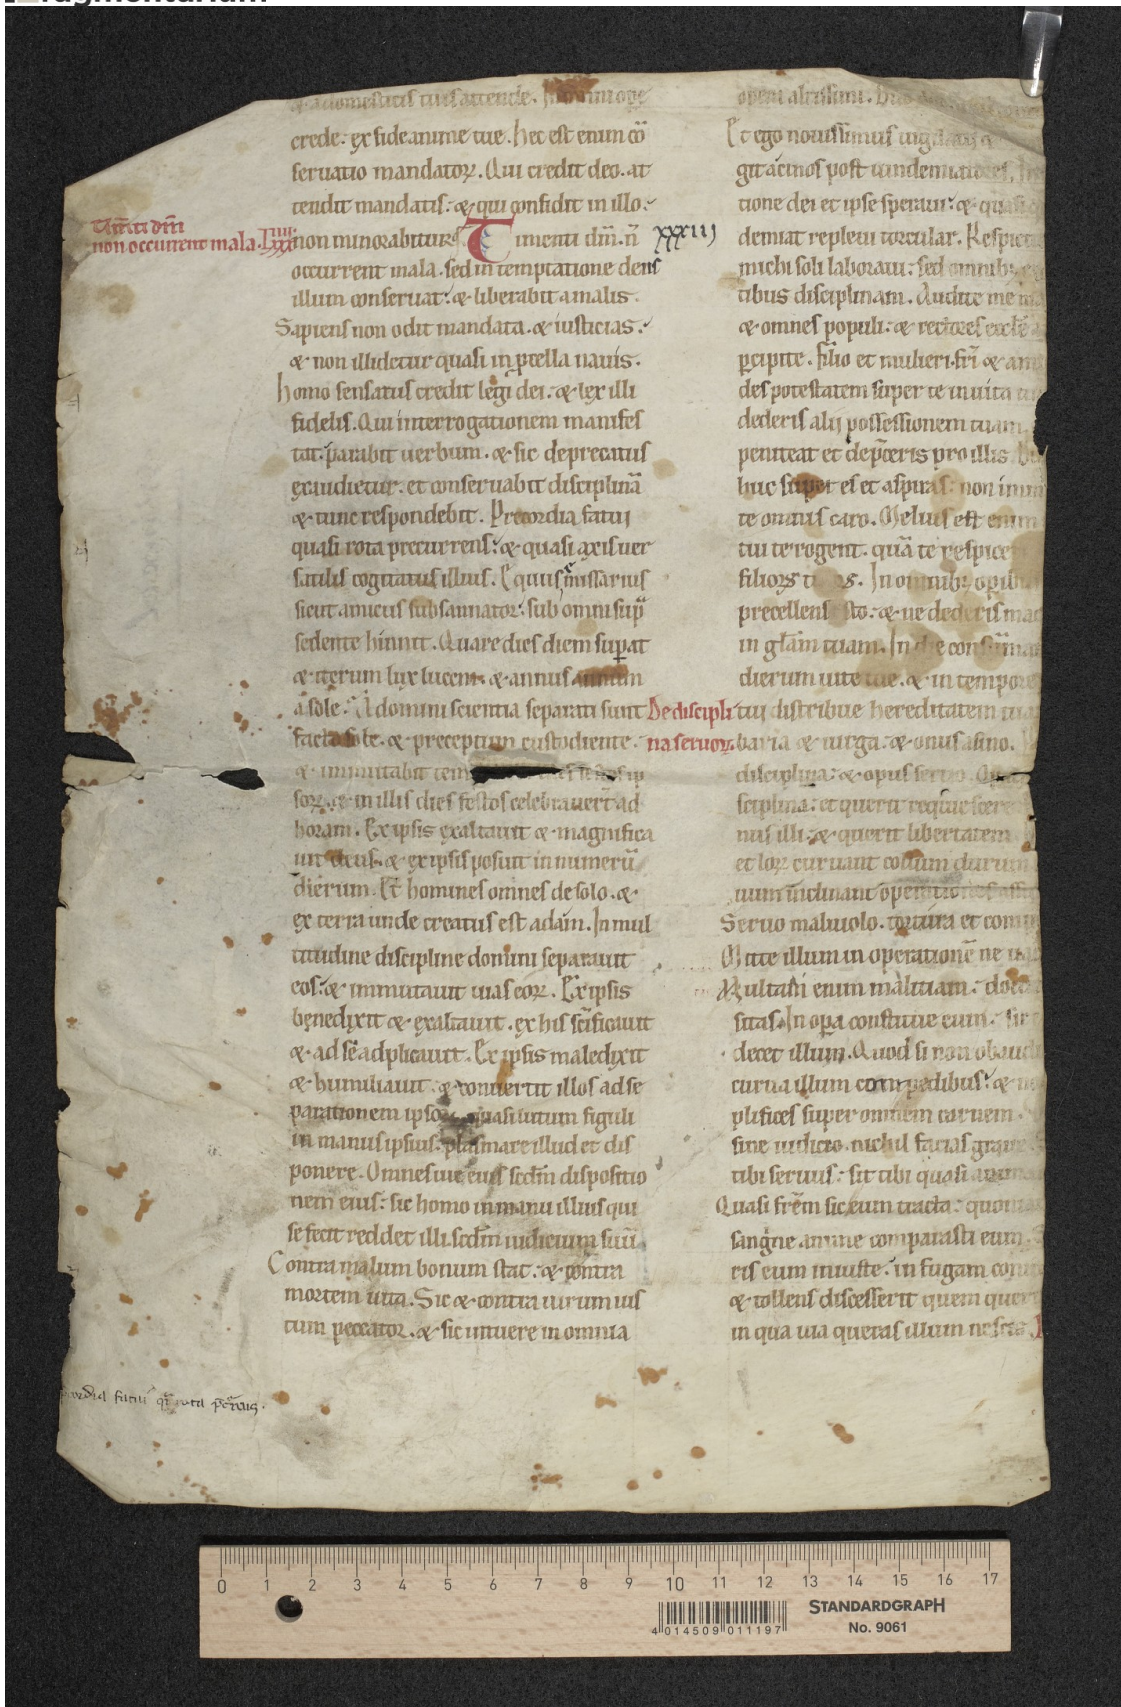 & a domesticis tuis attende. In omni ope
crede: ex fide anime tue. hec est enim cō
seruatio mandatoꝝ. Qui credit deo. at
tendit mandatis: & qui confidit in illo:
non minorabitur.
Timenti dn̄i
non occurrent mala. Lxxxiiii
Timenti dn̄m. n̄
xxxiij
occurrent mala. sed in temptatione deus
illum conseruat: & liberabit a malis.
Sapiens non odit mandata. & iusticias:
& non illidetur quasi in ꝓcella nauis.
homo sensatus credit legi dei. & lex illi
fidelis. Qui interrogationem manifes
tat: parabit uerbum. & sic deprecatus
exaudietur. et conseruabit disciplinā
& tunc respondebit. Precordia fatui
quasi rota precurrens: & quasi axis uer
satilis cogitatus illius. Equus emissarius
sicut amicus subsannator: sub omni sup̄
sedente hinnit. Quare dies diem suꝑat
& iterum lux lucem. & annus annum
a sole: A domini scientia separati sunt
facto sole. & preceptum custodiente.
& immutabit tem
soꝝ. & in illis dies festos celebrauerūt ad
horam. Ex ipsis exaltauit & magnifica
uit deus. & ex ipsis posuit in numerū
dierum. Et homines omnes de solo. &
ex terra unde creatus est adam. In mul
titudine discipline domini separauit
eos: & immutauit uias eoꝝ. Ex ipsis
benedixit & exaltauit. ex his sc̄ificauit
& ad se adplicauit. Ex ipsis maledixit
& humiliauit. & conuertit illos a se
paratione ipsoꝝ. quasi lutum figuli
in manu ipsius: plasmare illud et dis
ponere. Omnes uie eius scdm̄ dispositio
nem eius: sic homo in manu illius qui
se fecit reddet illi scdm̄ iudicium suū.
Contra malum bonum stat. & contra
mortem uita. Sic & contra uirum ius
tum peccator. & sic intuere in omnia
opera altissimi.
Et ego nouissimus uigilaui
git acinos post uindemiatores. In
tione dei et ipse speraui: & quasi
demiat repleui torcular. Respicite
michi soli laboraui: sed omnibꝫ
tibus disciplinam. Audite me
& omnes populi: & rectores eccl̄e
ꝑcipite. filio et mulieri. fr̄i & am
des potestatem super te in uita tua
dederis alii possessionem tuam.
peniteat et dep̄ceris pro illis.
huc super es et aspiras: non inm
te omnis caro. Melius est enim
tui te rogent. quā te respice
filioꝝ In omnibꝫ oꝑibus
precellens esto: & ne dederis mac
in gl̄am tuam. In die consūma
dierum uite tue. & in tempore
De discipli
na seruoꝝ.
tui distribue hereditatem tuam
baria & uirga: & onus asino.
disciplina: & opus seruo.
sciplina: et querit requiescere
nus illi: & querit libertatem.
et loꝝ curuant collum durum
uum inclinant operationes
Seruo maliuolo. tortura et com
Mitte illum in operationē ne
Multam enim malitiam: docu
sitas. In oꝑa constitue eum: sic
decet illum. Quod si non obaudi
curua illum compedibus: &
plifices super omnem carnem.
sine iudicio. nichil facias graue.
tibi seruus: sit tibi quasi anima
Quasi fr̄em sic eum tracta: quoni
sangīne anime comparasti eum.
ris eum iniuste: in fugam con
& tollens discesserit quem quer
in qua uia queras illum nescis.
fatui qͣ rota
0 1 2 3 4 5 6 7 8 9 10 11 12 13 14 15 16 17
4 014509 011197
STANDARDGRAPH
No. 9061